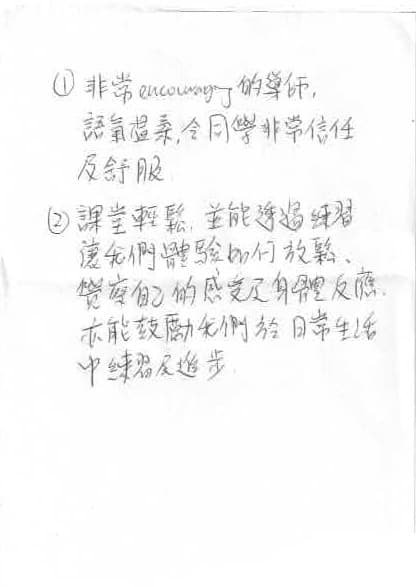 ① 非常 encouraging 的導師,
語氣溫柔,令同學非常信任
及舒服
② 課堂輕鬆,並能透過練習
讓我們體驗如何放鬆、
覺察自己的感受及身體反應.
亦能鼓勵我們於日常生活
中練習及進步.